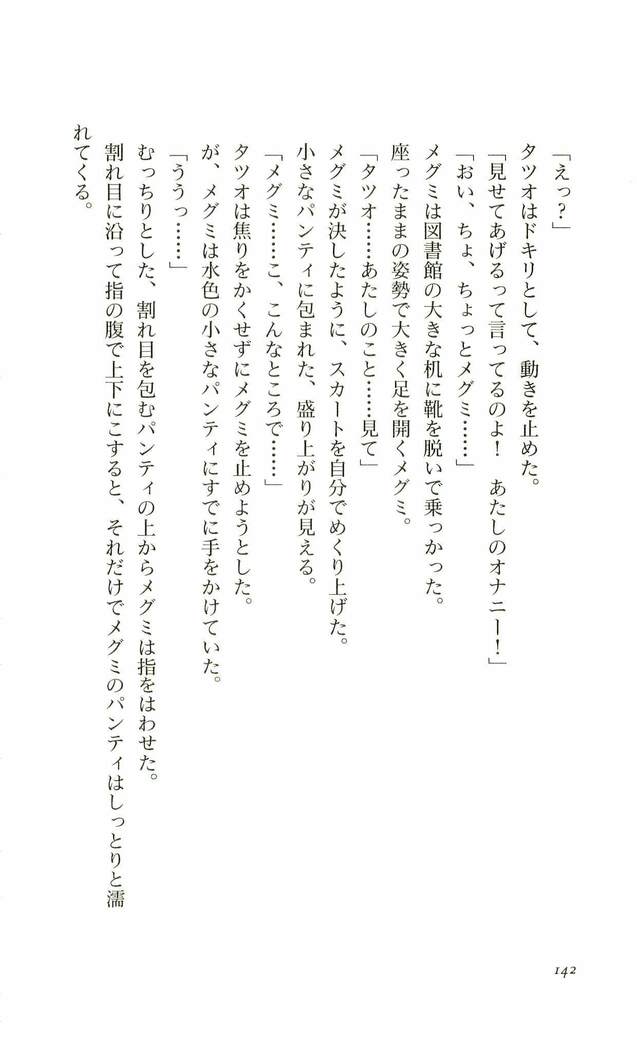 「えっ？」
タツオはドキリとして、動きを止めた。
「見せてあげるって言ってるのよ！　あたしのオナニー！」
「おい、ちょ、ちょっとメグミ……」
メグミは図書館の大きな机に靴を脱いで乗っかった。
座ったままの姿勢で大きく足を開くメグミ。
「タツオ……あたしのこと……見て」
メグミが決したように、スカートを自分でめくり上げた。
小さなパンティに包まれた、盛り上がりが見える。
「メグミ……こ、こんなところで……」
タツオは焦りをかくせずにメグミを止めようとした。
が、メグミは水色の小さなパンティにすでに手をかけていた。
「ううっ……」
むっちりとした、割れ目を包むパンティの上からメグミは指をはわせた。
割れ目に沿って指の腹で上下にこすると、それだけでメグミのパンティはしっとりと濡
れてくる。
142